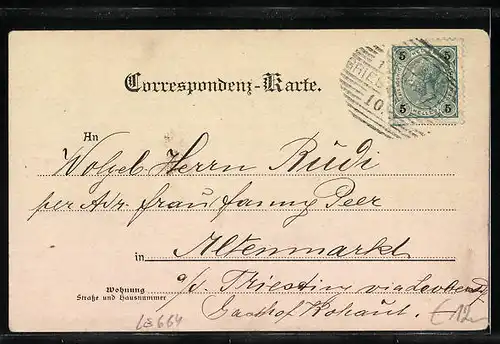 5 5
5 5
10.
Correspondenz-Karte.
An
Wolgeb. Herrn Rudi
per Adr. Frau Fanny Peer
in Altenmarkt
Wohnung
Straße und Hausnummer
a/d. Triesting via Leobersdf
Gasthof Kohaut.